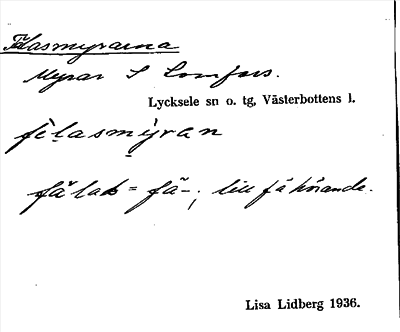 Fälasmyrarna
Myrar S Lomfors.
Lycksele sn o. tg, Västerbottens l.
fèlasmýran
fälas = fä-; till fä hörande.
Lisa Lidberg 1936.